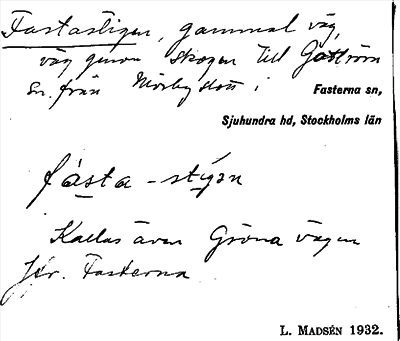 Fastastigen, gammal väg,
väg genom skogen till Gottröra
sn. från Mörby slott i
Fasterna sn,
Sjuhundra hd, Stockholms län
fásta-stýgən
Kallas även Gröna vägen
Jfr. Fasterna
L. MADSÉN 1932.